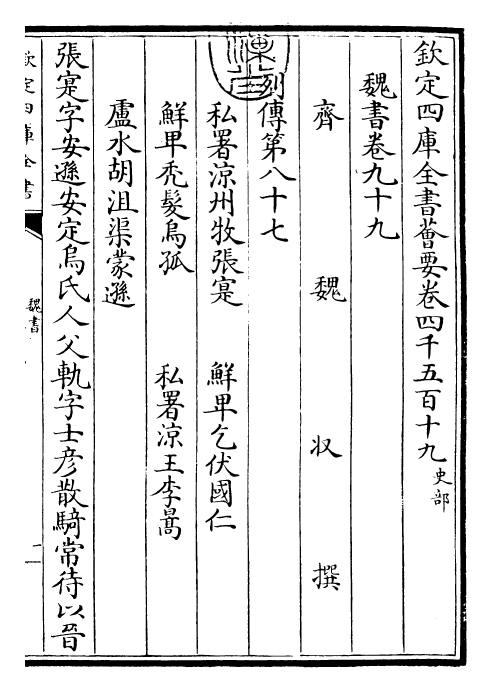 欽定四庫全書薈要卷四千五百十九史部
魏書卷九十九
齊魏收撰
列傳第八十七
私署涼州牧張寔 鮮卑乞伏國仁
鮮卑禿髮烏孤 私署涼王李暠
盧水胡沮渠蒙遜
張寔字安遜安定烏氏人父軌字士彥散騎常待以晉
欽定四庫全書
魏書